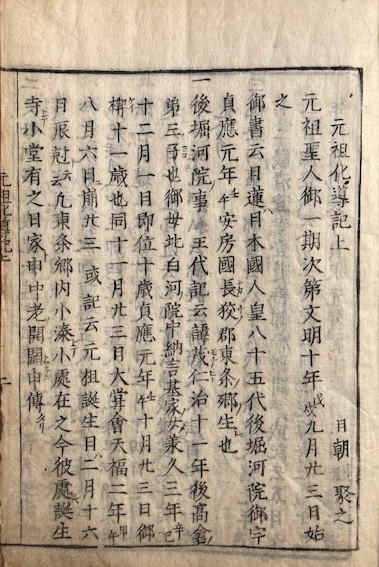 元祖化導記上
日朝 聚之
元祖聖人御一期次第文明十年戊戌九月廿三日始
之
御書云日蓮日本國人皇八十五代後堀河院御宇
貞應元年壬午安房國長狹郡東条郷生也
一後堀河院事 王代記云諱茂仁治十一年後高倉
第三子也御母北白河院中納言基家女承久三年辛巳
十二月一日即位十歳貞應元年壬午十月廿三日御
禊十一歳也同十一月廿三日大嘗會天福二年甲午
八月六日崩廿三 或記云元祖誕生日二月十六
日辰尅云云東条郷内小湊小處在之今彼處誕生
寺小堂有之日家申中老開闢申傳
元祖化導記上